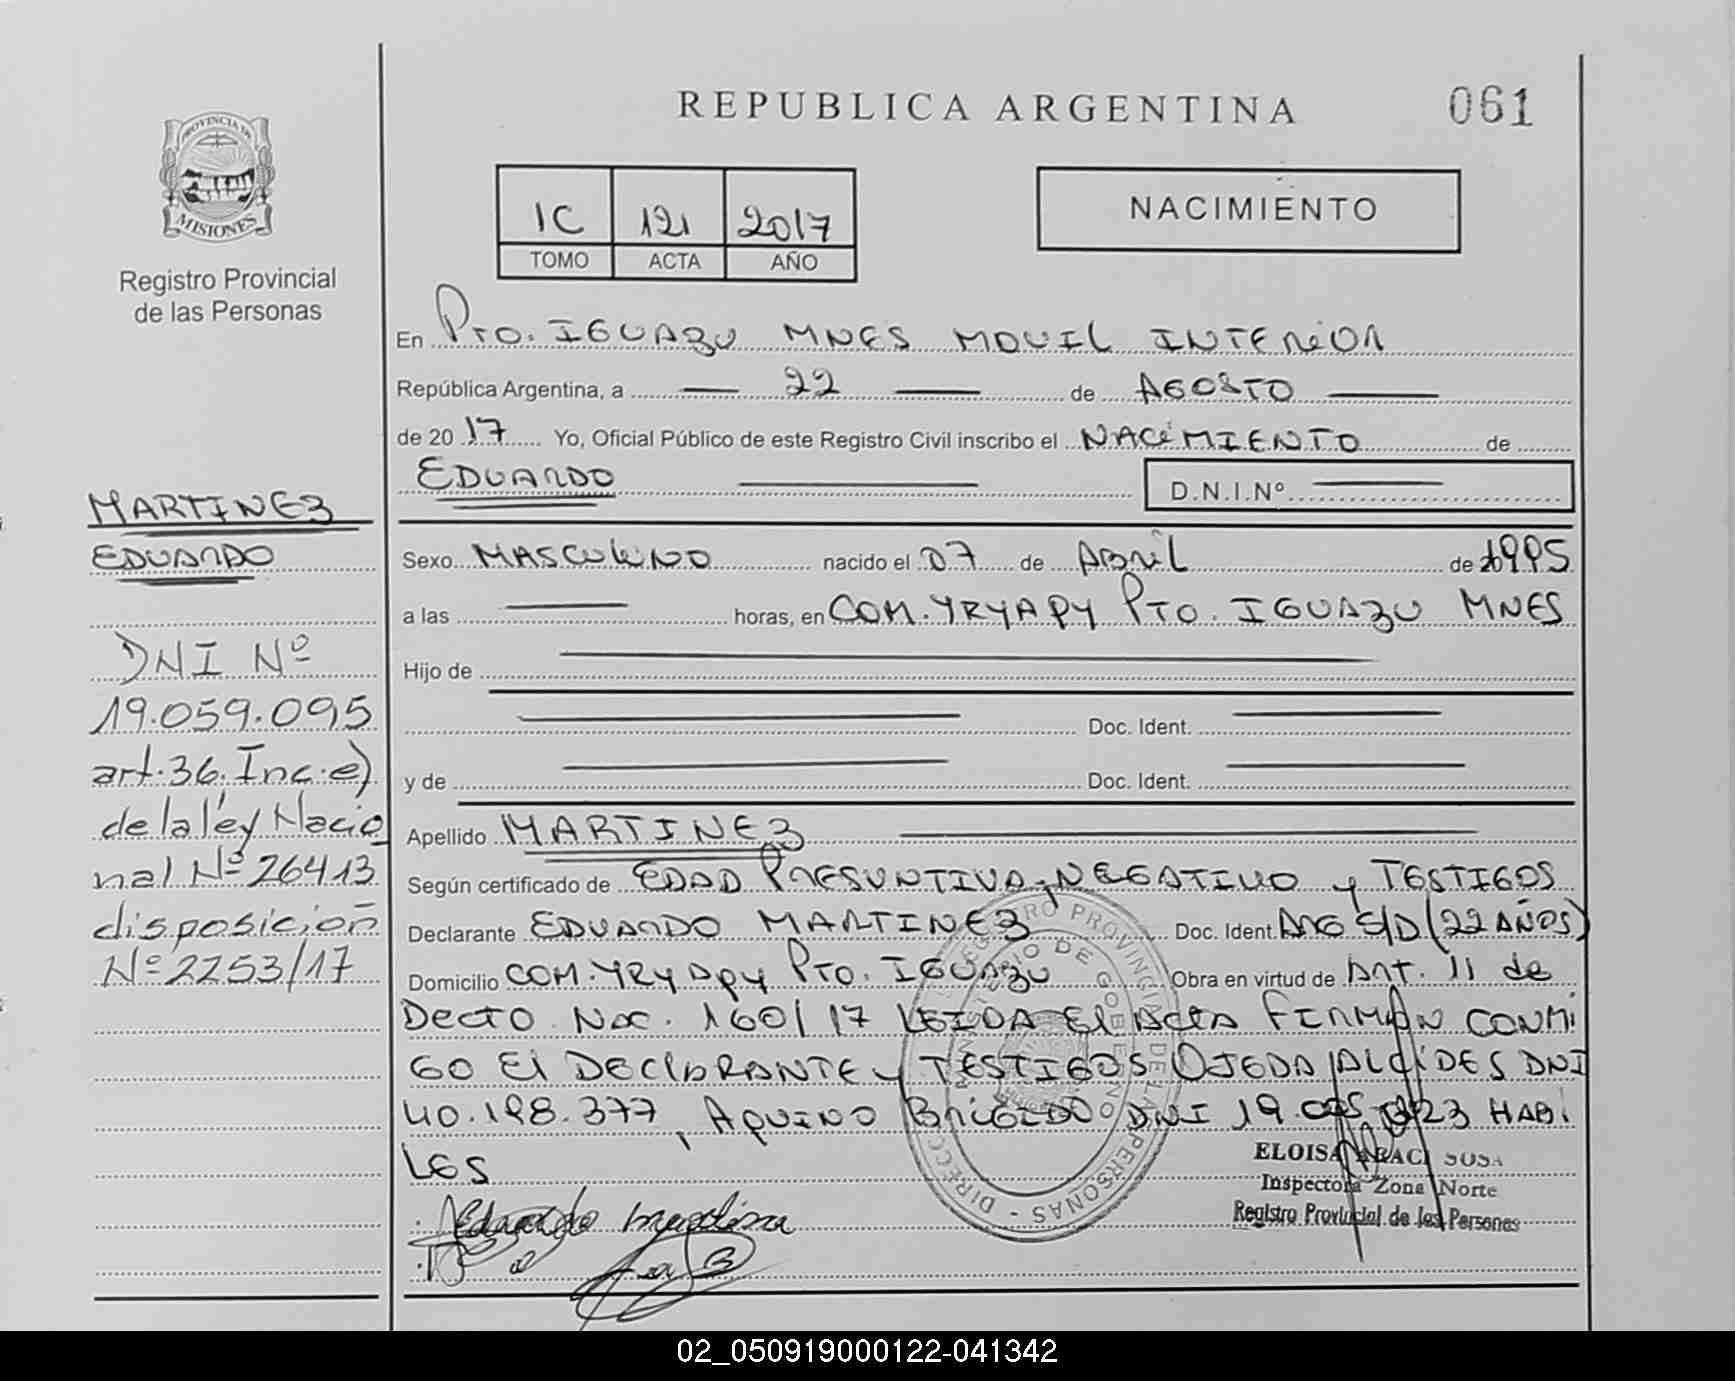 REPUBLICA ARGENTINA
061
PROVINCIA DE
MISIONES
Registro Provincial
de las Personas
1C 121 2017
TOMO ACTA AÑO
NACIMIENTO
En Pto. IGUAZU MNES MOVIL INTERIOR
República Argentina, a 22 de AGOSTO
de 20 17 Yo, Oficial Público de este Registro Civil inscribo el NACIMIENTO de
EDUARDO
D.N.I.Nº
MARTINEZ
EDUARDO
DNI Nº
19.059.095
art. 36. Inc. e)
de la ley Nacio
nal Nº 26413
disposición
Nº 2253/17
Sexo MASCULINO nacido el 07 de Abril de 1995
a las horas, en COM. YRYAPY PTO. IGUAZU MNES
Hijo de
Doc. Ident.
y de Doc. Ident.
Apellido MARTINEZ
Según certificado de EDAD PRESUNTIVA, NEGATIVO y TESTIGOS
Declarante EDUARDO MARTINEZ Doc. Ident. ARG S/D (22 AÑOS)
Domicilio COM. YRYAPY PTO. IGUAZU Obra en virtud de Art. 11 de
Decto Nac. 160/17 LEIDA El Acta FIRMAN CONMI
GO El DEClARANTE y TESTIGOS OJEDA AlCIDES DNI
40.198.377, AQUINO BRIGIDO DNI 19. 323 HABI
LES
DIRECC REGISTRO PROVINCIAL DE LAS PERSONAS -
MINISTERIO DE GOBIERNO
ELOISA ARACI SOSA
Inspectora Zona Norte
Registro Provincial de las Personas
Eduardo martinez
02_050919000122-041342